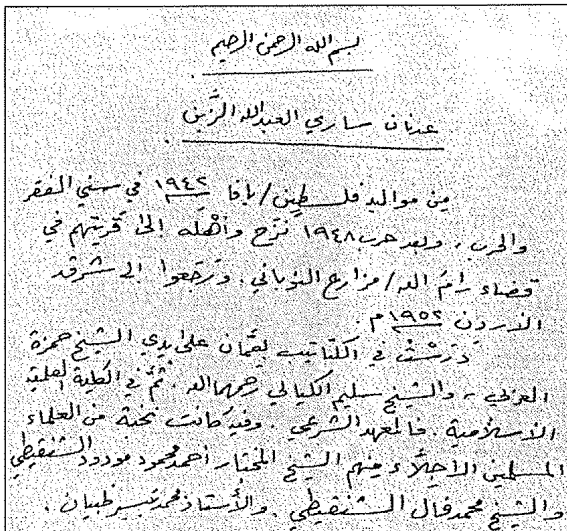 بسم الله الرحمن الرحيم
عدنان ساري العبدالله الزَّبن
من مواليد فلسطين/يافا ١٩٤٢ في سني الفقر
والحرب، وبعد حرب ١٩٤٨ نزح وأهله إلى قريتهم في
قضاء رام الله/مزارع النوباني. ورجعوا إلى شرق
الأردن ١٩٥٢ م.
دَرَسَ في الكتاتيب بعمّان على يدي الشيخ حمزة
العربي - والشيخ سليم الكيالي رحمهما الله. ثم في الكلية العلمية
الاسلامية. فالمعهد الشرعي. وفيه كانت نخبة من العلماء
المسلمين الأجِلَّاء منهم الشيخ المختار أحمد محمود مودود الشنقيطي
والشيخ محمد فال الشنقيطي. والأستاذ محمد تيسير ظبيان.